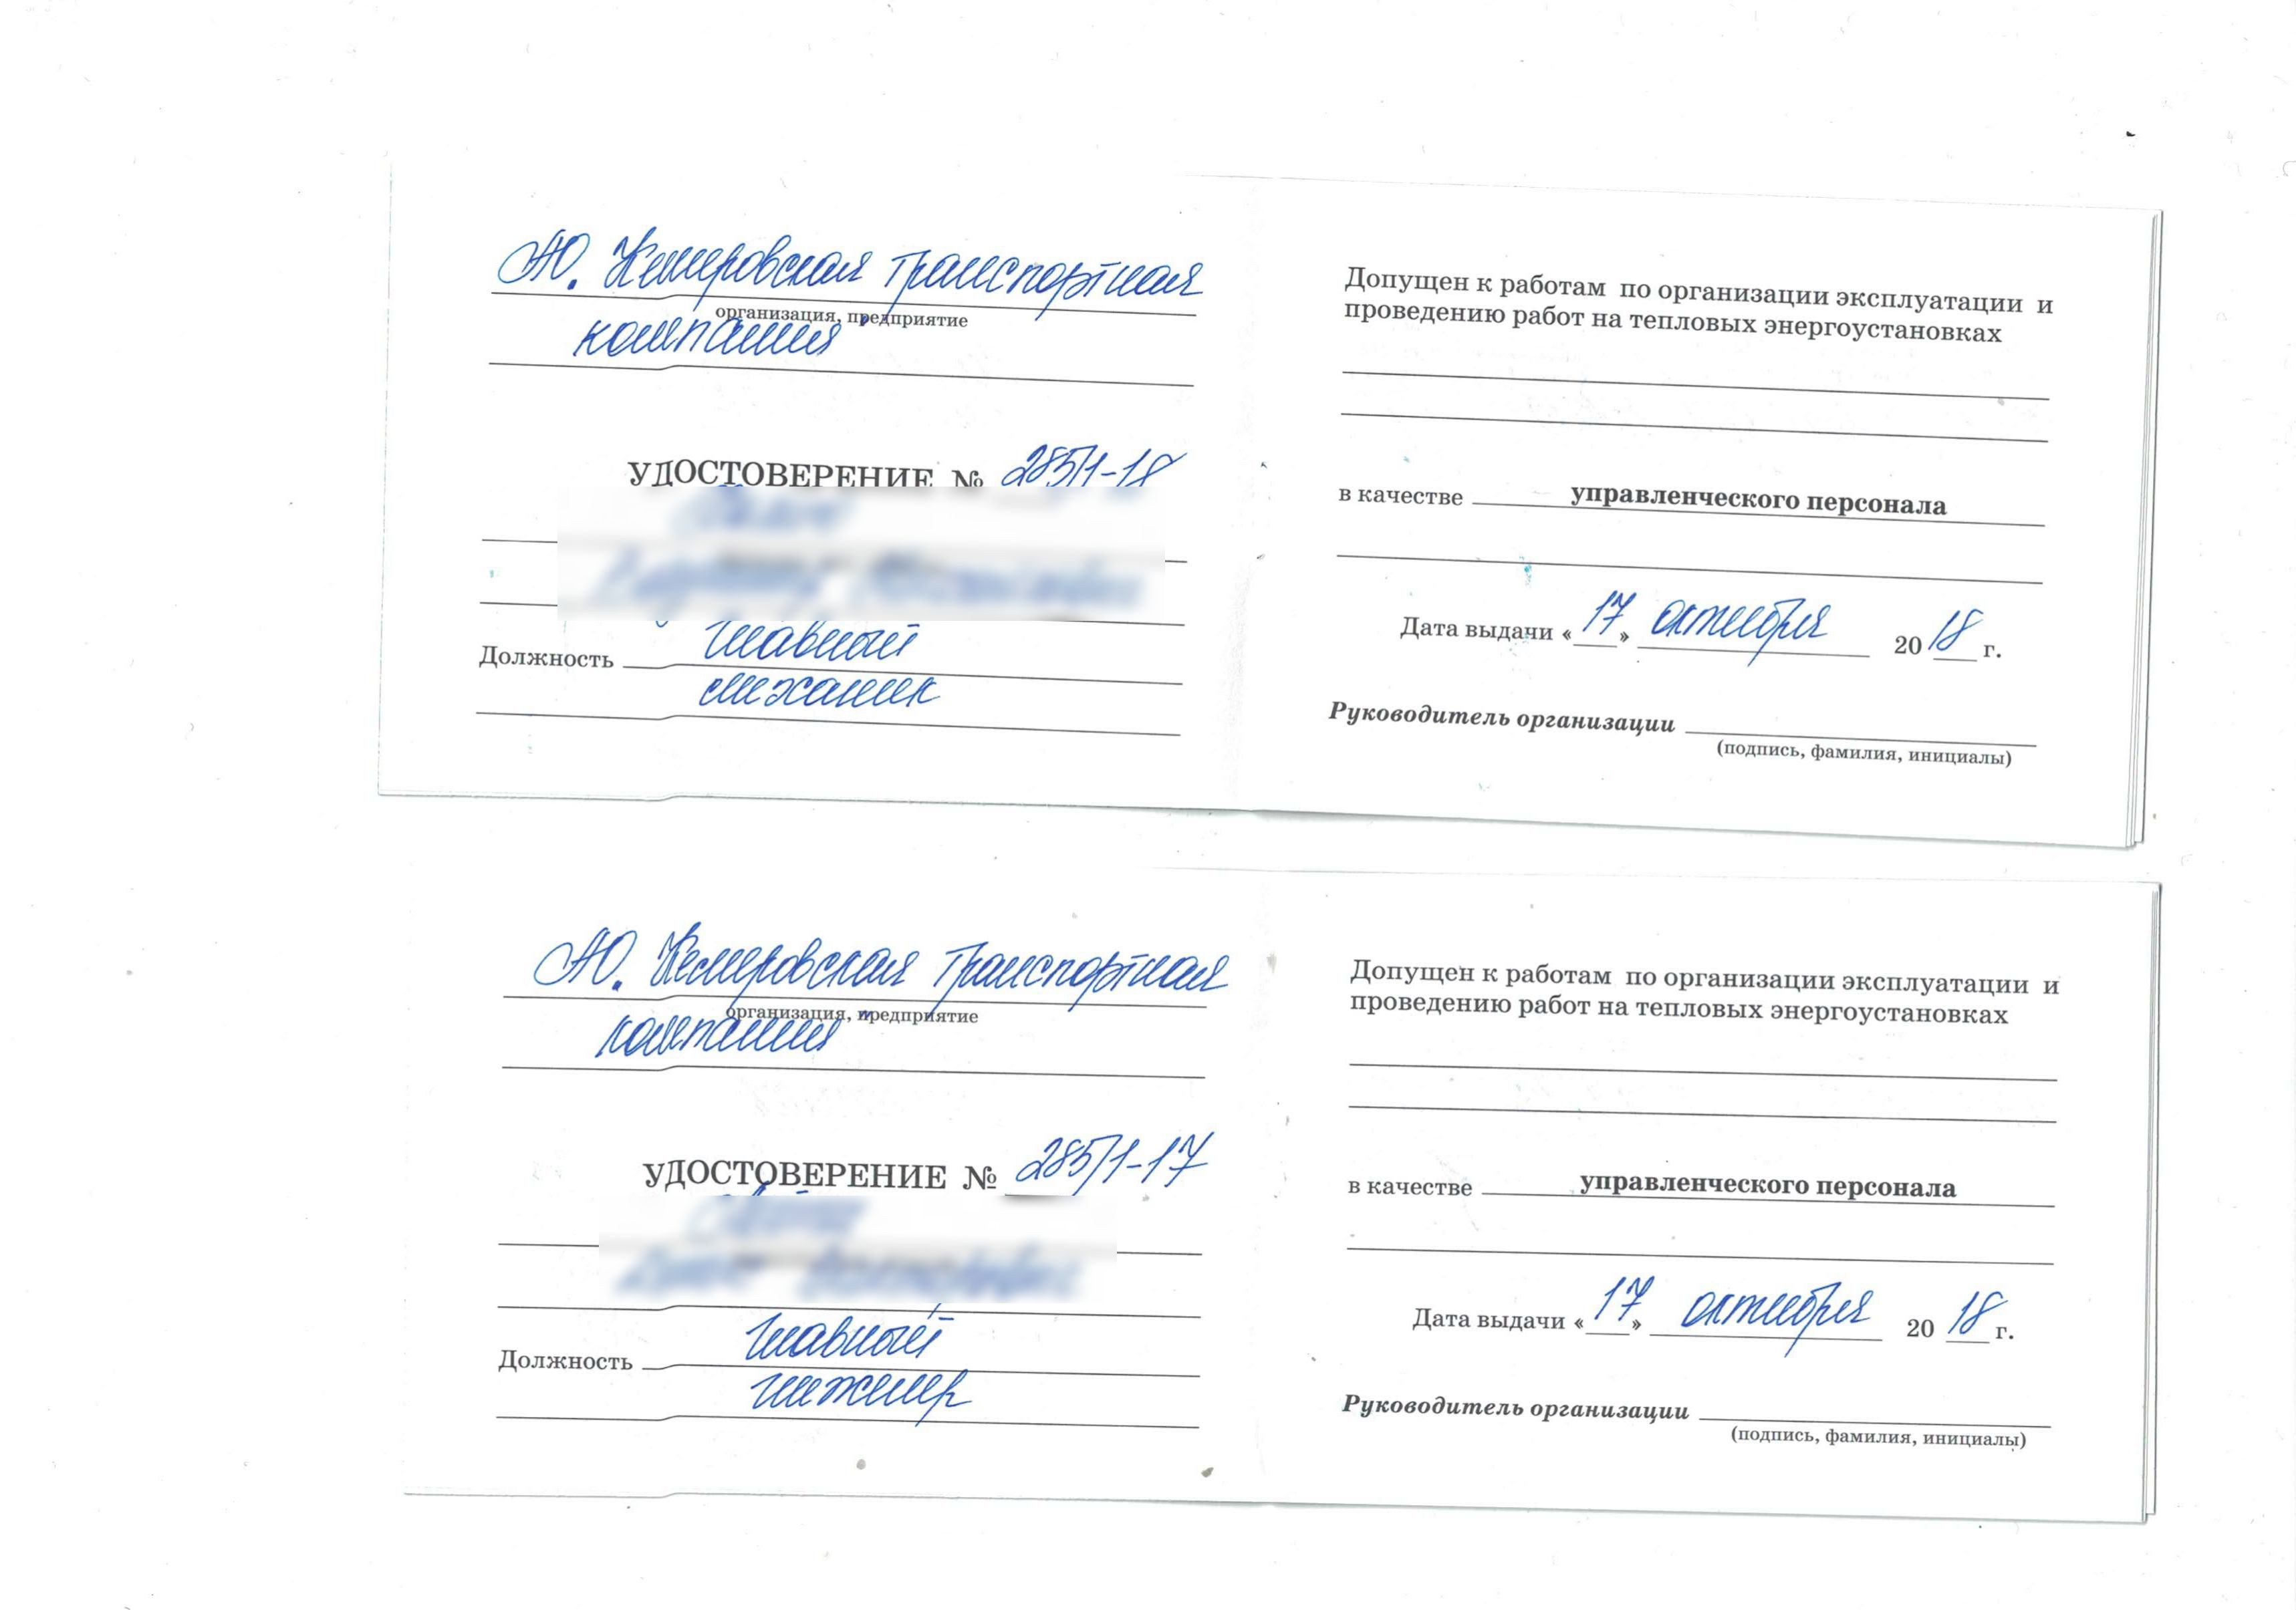 АО. Кемеровская транспортная
организация, предприятие
компания"
УДОСТОВЕРЕНИЕ № 285/1-18
Должность главный
механик
Допущен к работам по организации эксплуатации и
проведению работ на тепловых энергоустановках
в качестве управленческого персонала
Дата выдачи « 17 » октября 20 18 г.
Руководитель организации
(подпись, фамилия, инициалы)
АО. Кемеровская транспортная
организация, предприятие
компания"
УДОСТОВЕРЕНИЕ № 285/1-17
Должность главный
инженер
Допущен к работам по организации эксплуатации и
проведению работ на тепловых энергоустановках
в качестве управленческого персонала
Дата выдачи « 17 » октября 20 18 г.
Руководитель организации
(подпись, фамилия, инициалы)